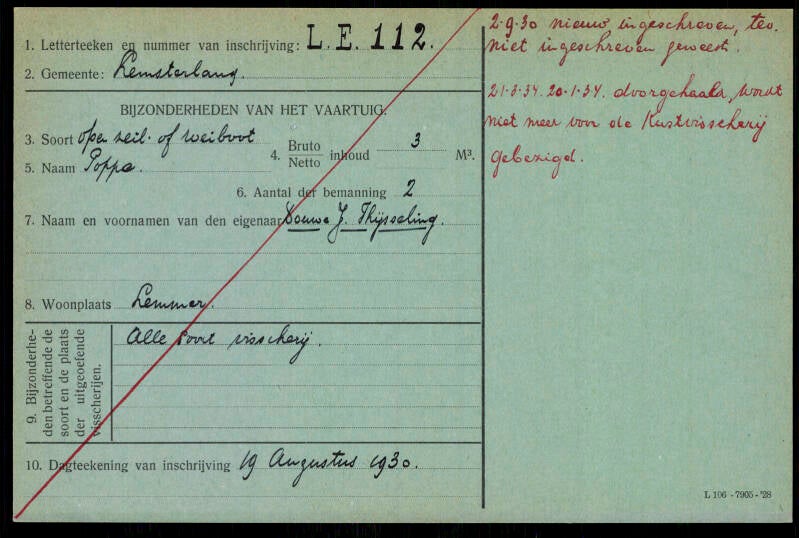 1. Letterteeken en nummer van inschrijving: L.E. 112.
2. Gemeente: Lemsterland.
BIJZONDERHEDEN VAN HET VAARTUIG.
3. Soort open zeil- of weiboot
4. Bruto Netto inhoud 3 M³.
5. Naam Poppe.
6. Aantal der bemanning 2
7. Naam en voornamen van den eigenaar Douwe J. Thijsseling.
8. Woonplaats Lemmer.
9. Bijzonderhe-
den betreffende de
soort en de plaats
der uitgeoefende
visscherijen.
Alle soort visscherij.
10. Dagteekening van inschrijving 19 Augustus 1930.
2-9-30 nieuw ingeschreven, tev.
niet ingeschreven geweest.
21-3-34. 20-1-34. doorgehaald, wordt
niet meer voor de Kustvisscherij
gebezigd.
L 106 - 7905 - '28